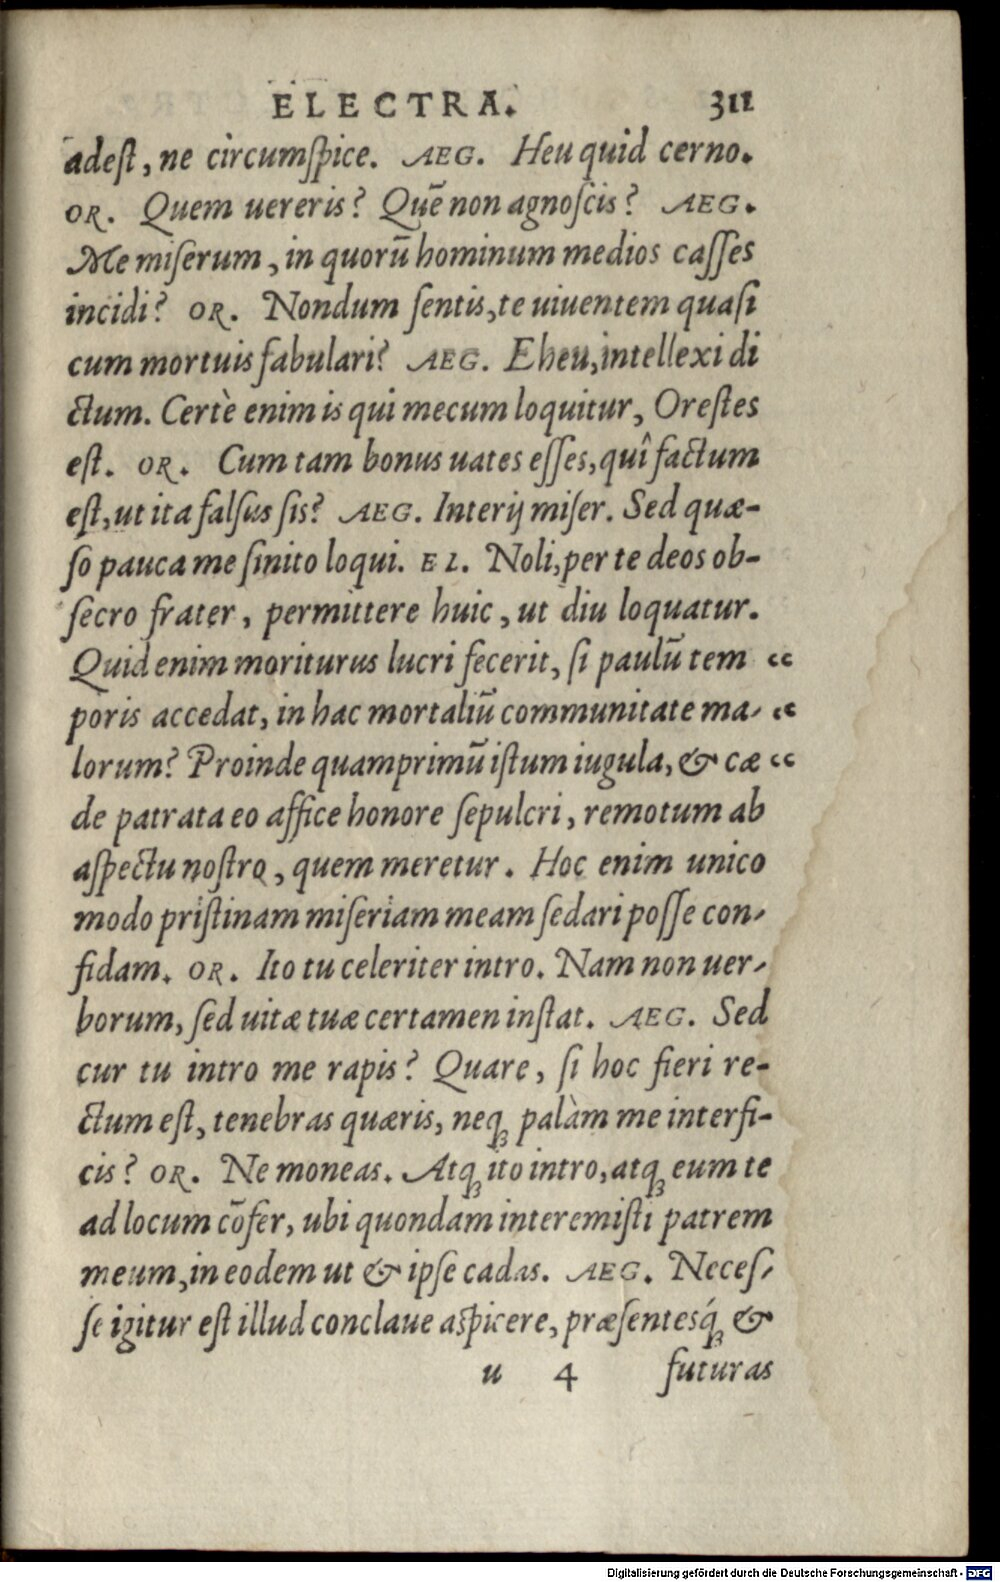 ELECTRA. 311
adeſt, ne circumſpice. AEG. Heu quid cerno.
OR. Quem uereris? Quē non agnoſcis? AEG.
Me miſerum, in quorū hominum medios caſſes
incidi? OR. Nondum ſentis, te uiuentem quaſi
cum mortuis fabulari? AEG. Eheu, intellexi di
ctum. Certè enim is qui mecum loquitur, Oreſtes
eſt. OR. Cum tam bonus uates eſſes, quî factum
eſt, ut ita falſus ſis? AEG. Interij miſer. Sed quæ-
ſo pauca me ſinito loqui. EL. Noli, per te deos ob-
ſecro frater, permittere huic, ut diu loquatur.
Quid enim moriturus lucri fecerit, ſi paulū tem “
poris accedat, in hac mortaliū communitate ma- “
lorum? Proinde quamprimū iſtum iugula, & cæ “
de patrata eo affice honore ſepulcri, remotum ab
aſpectu noſtro, quem meretur. Hoc enim unico
modo priſtinam miſeriam meam ſedari poſſe con-
fidam. OR. Ito tu celeriter intro. Nam non uer-
borum, ſed uitæ tuæ certamen inſtat. AEG. Sed
cur tu intro me rapis? Quare, ſi hoc fieri re-
ctum eſt, tenebras quæris, neqꝫ palàm me interfi-
cis? OR. Ne moneas. Atqꝫ ito intro, atqꝫ eum te
ad locum cōfer, ubi quondam interemiſti patrem
meum, in eodem ut & ipſe cadas. AEG. Neceſ-
ſe igitur eſt illud conclaue aſpicere, præſentesq́ꝫ &
u 4 futuras
Digitalisierung gefördert durch die Deutsche Forschungsgemeinschaft - DFG